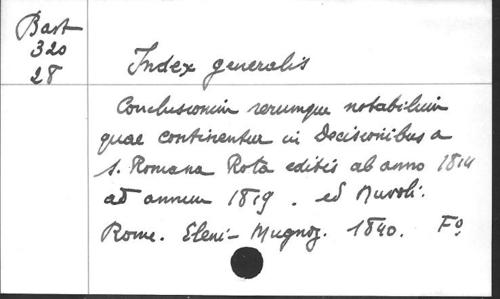 Bast
320
28
Index generalis
Conclusionum rerumque notabilium
quae continentur in Decisionibus a
S. Romana Rota editis ab anno 1814
ad annum 1819. ed Nuvoli.
Rome. Eleni-Mugnoz. 1840. Fº